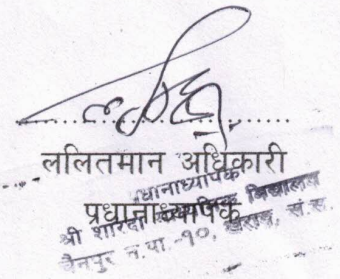 ललितमान अधिकारी
प्रधानाध्यापक
प्रधानाध्यापक
श्री शारदा विद्यालय
चैनपुर न.पा.-१०, खराङ, सं.स.